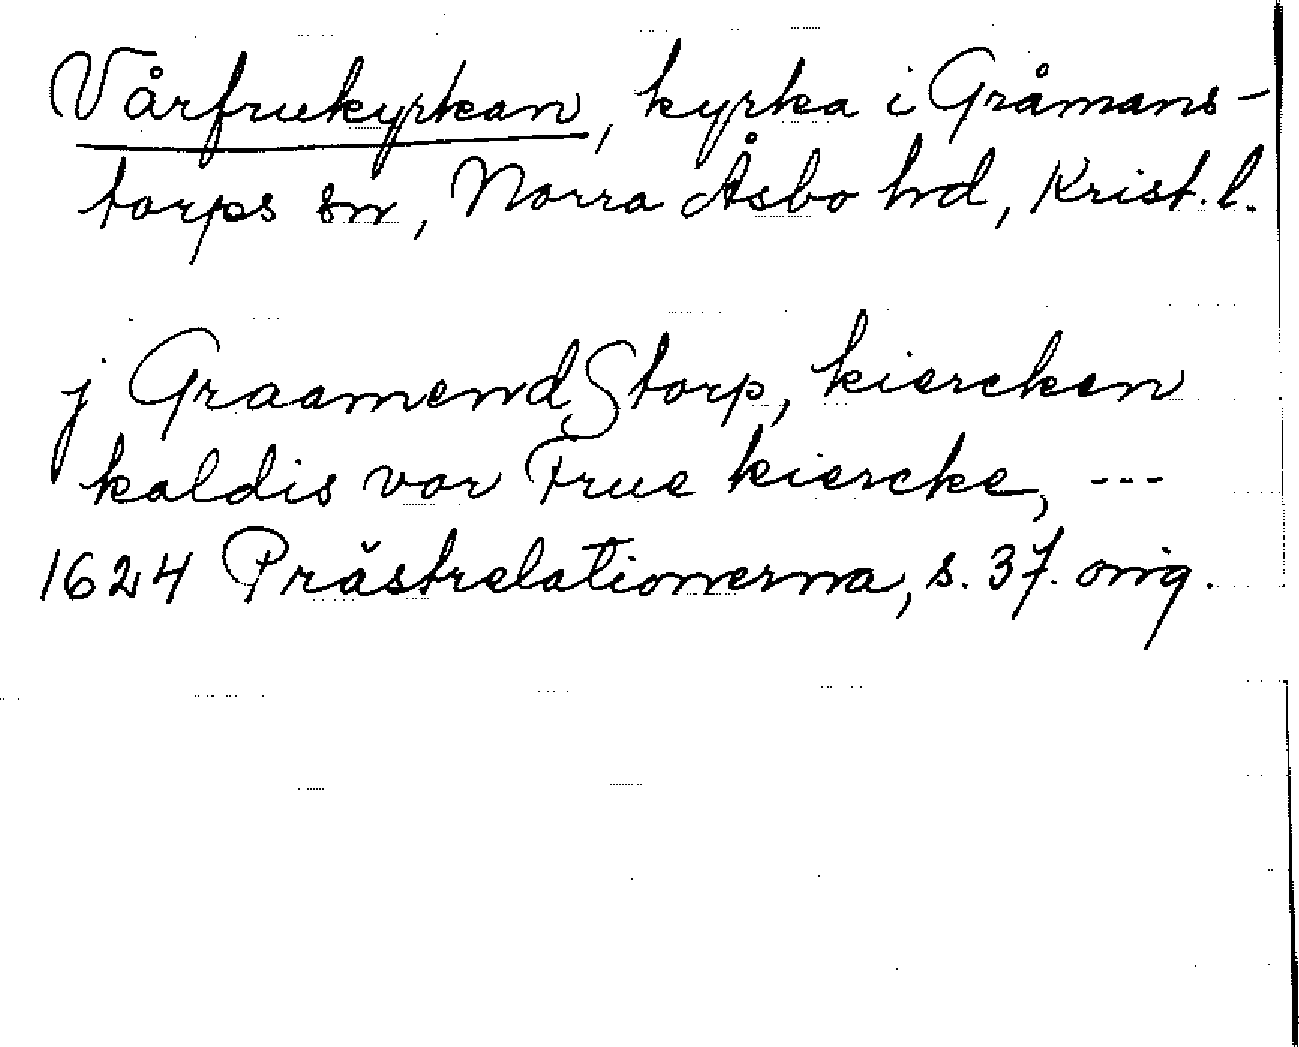 Vårfruekyrkan, kyrka i Gråmans-
torps sn, Norra Åsbo hd, Krist. l.
j Graamend Storp, kiercken
kaldis vor Frue kiercke, ---
1624 Prästrelationerna, s. 37. orig.